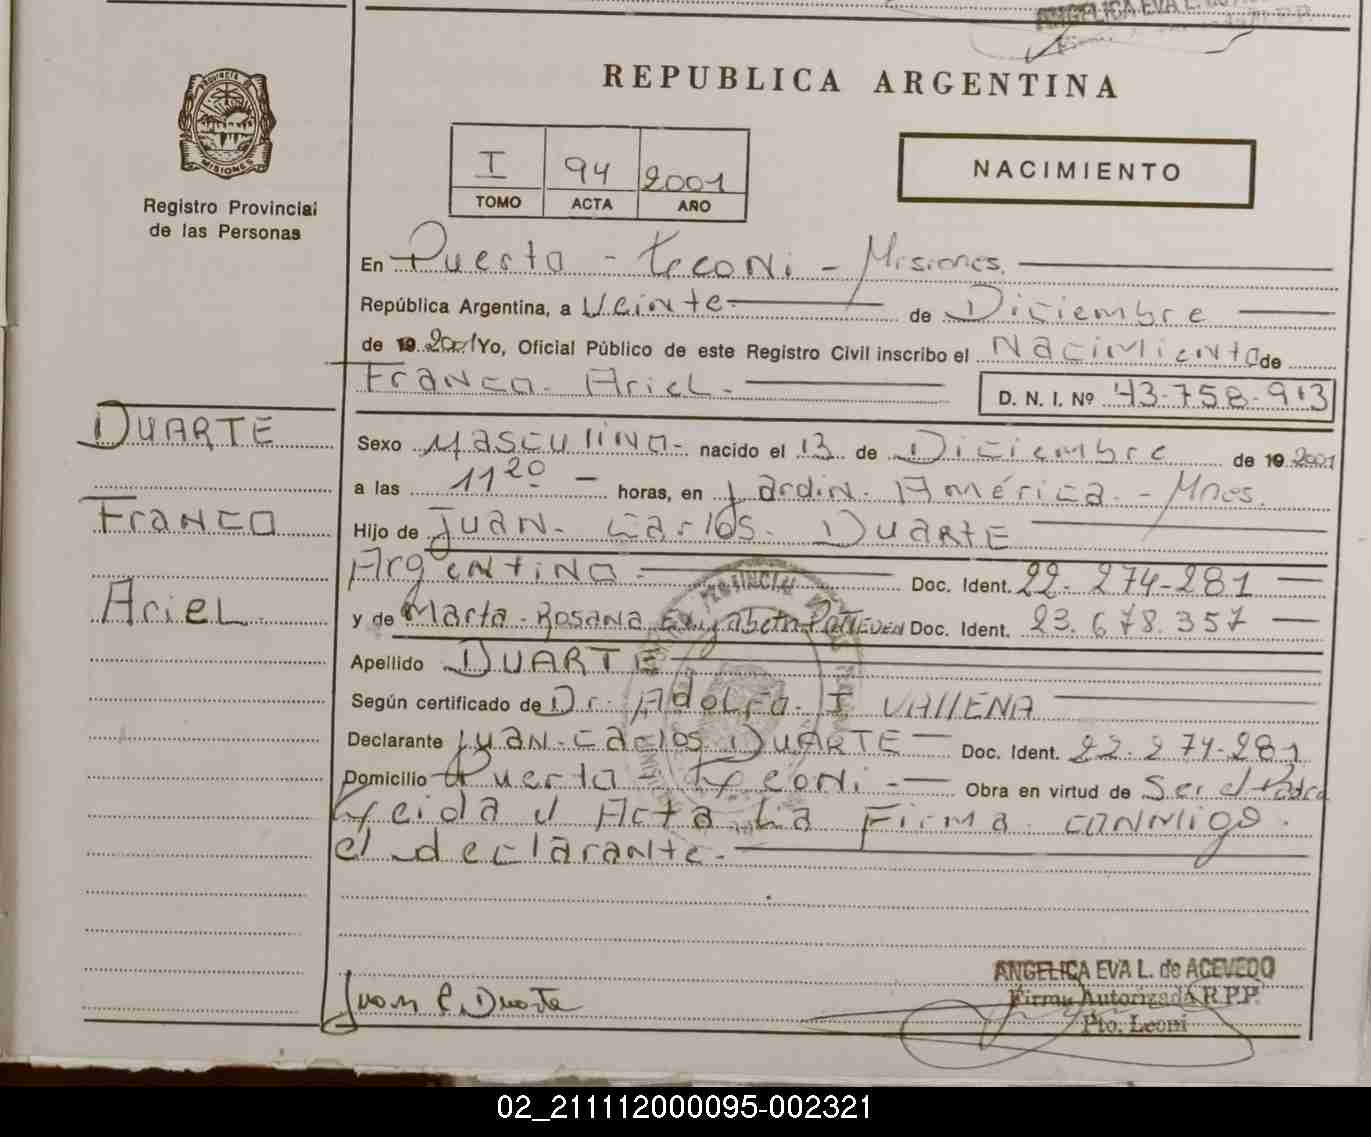 ANGELICA EVA L.
REPUBLICA ARGENTINA
PROVINCIA
MISIONES
Registro Provincial
de las Personas
I 94 2001
TOMO ACTA AÑO
NACIMIENTO
En Puerto - Leoni - Misiones.
República Argentina, a Veinte de Diciembre
de 19 2001 Yo, Oficial Público de este Registro Civil inscribo el Nacimiento de
Franco. Ariel. D. N. I. Nº 43-758-913
DUARTE
Franco
Ariel.
Sexo Masculino. nacido el 13 de Diciembre de 19 2001
a las 11 20 horas, en Jardin. América. - Mnes.
Hijo de Juan. Carlos. Duarte
Argentino. Doc. Ident. 22-274-281
y de Marta - Rosana Elizabeth Doc. Ident. 23.678.357
Apellido DUARTE
Según certificado de Dr. Adolfo. I VALLENA
Declarante Juan - Carlos DUARTE Doc. Ident. 22.274-281
Domicilio Puerto - Leoni - Obra en virtud de Ser el Padre
Leida el Acta La Firma conmigo.
el declarante.
Juan C Duarte
ANGELICA EVA L. de ACEVEDO
Firma Autorizada R.P.P.
Pto. Leoni
02_211112000095-002321